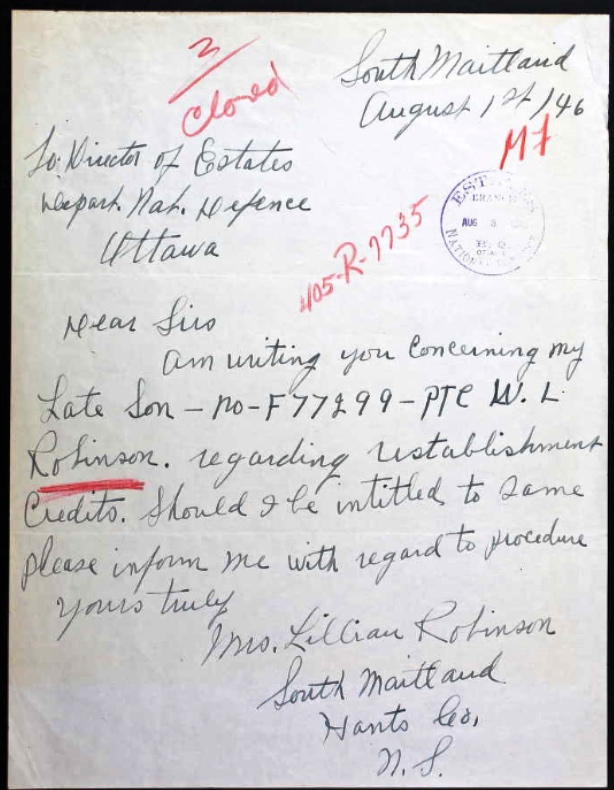 3
closed
South Maitland
August 1st/46
M7
To: Director of Estates
Depart. Nat. Defence
Ottawa
ESTATES
BRANCH
AUG 5
NATIONAL
405-R-7735
Dear Sirs
am writing you Concerning my
Late Son - no - F77299 - PTE W. L.
Robinson. regarding restablishment
Credits. Should I be intitled to same
please inform me with regard to procedure
yours truly
Mrs. Lillian Robinson
South Maitland
Hants Co,
N. S.